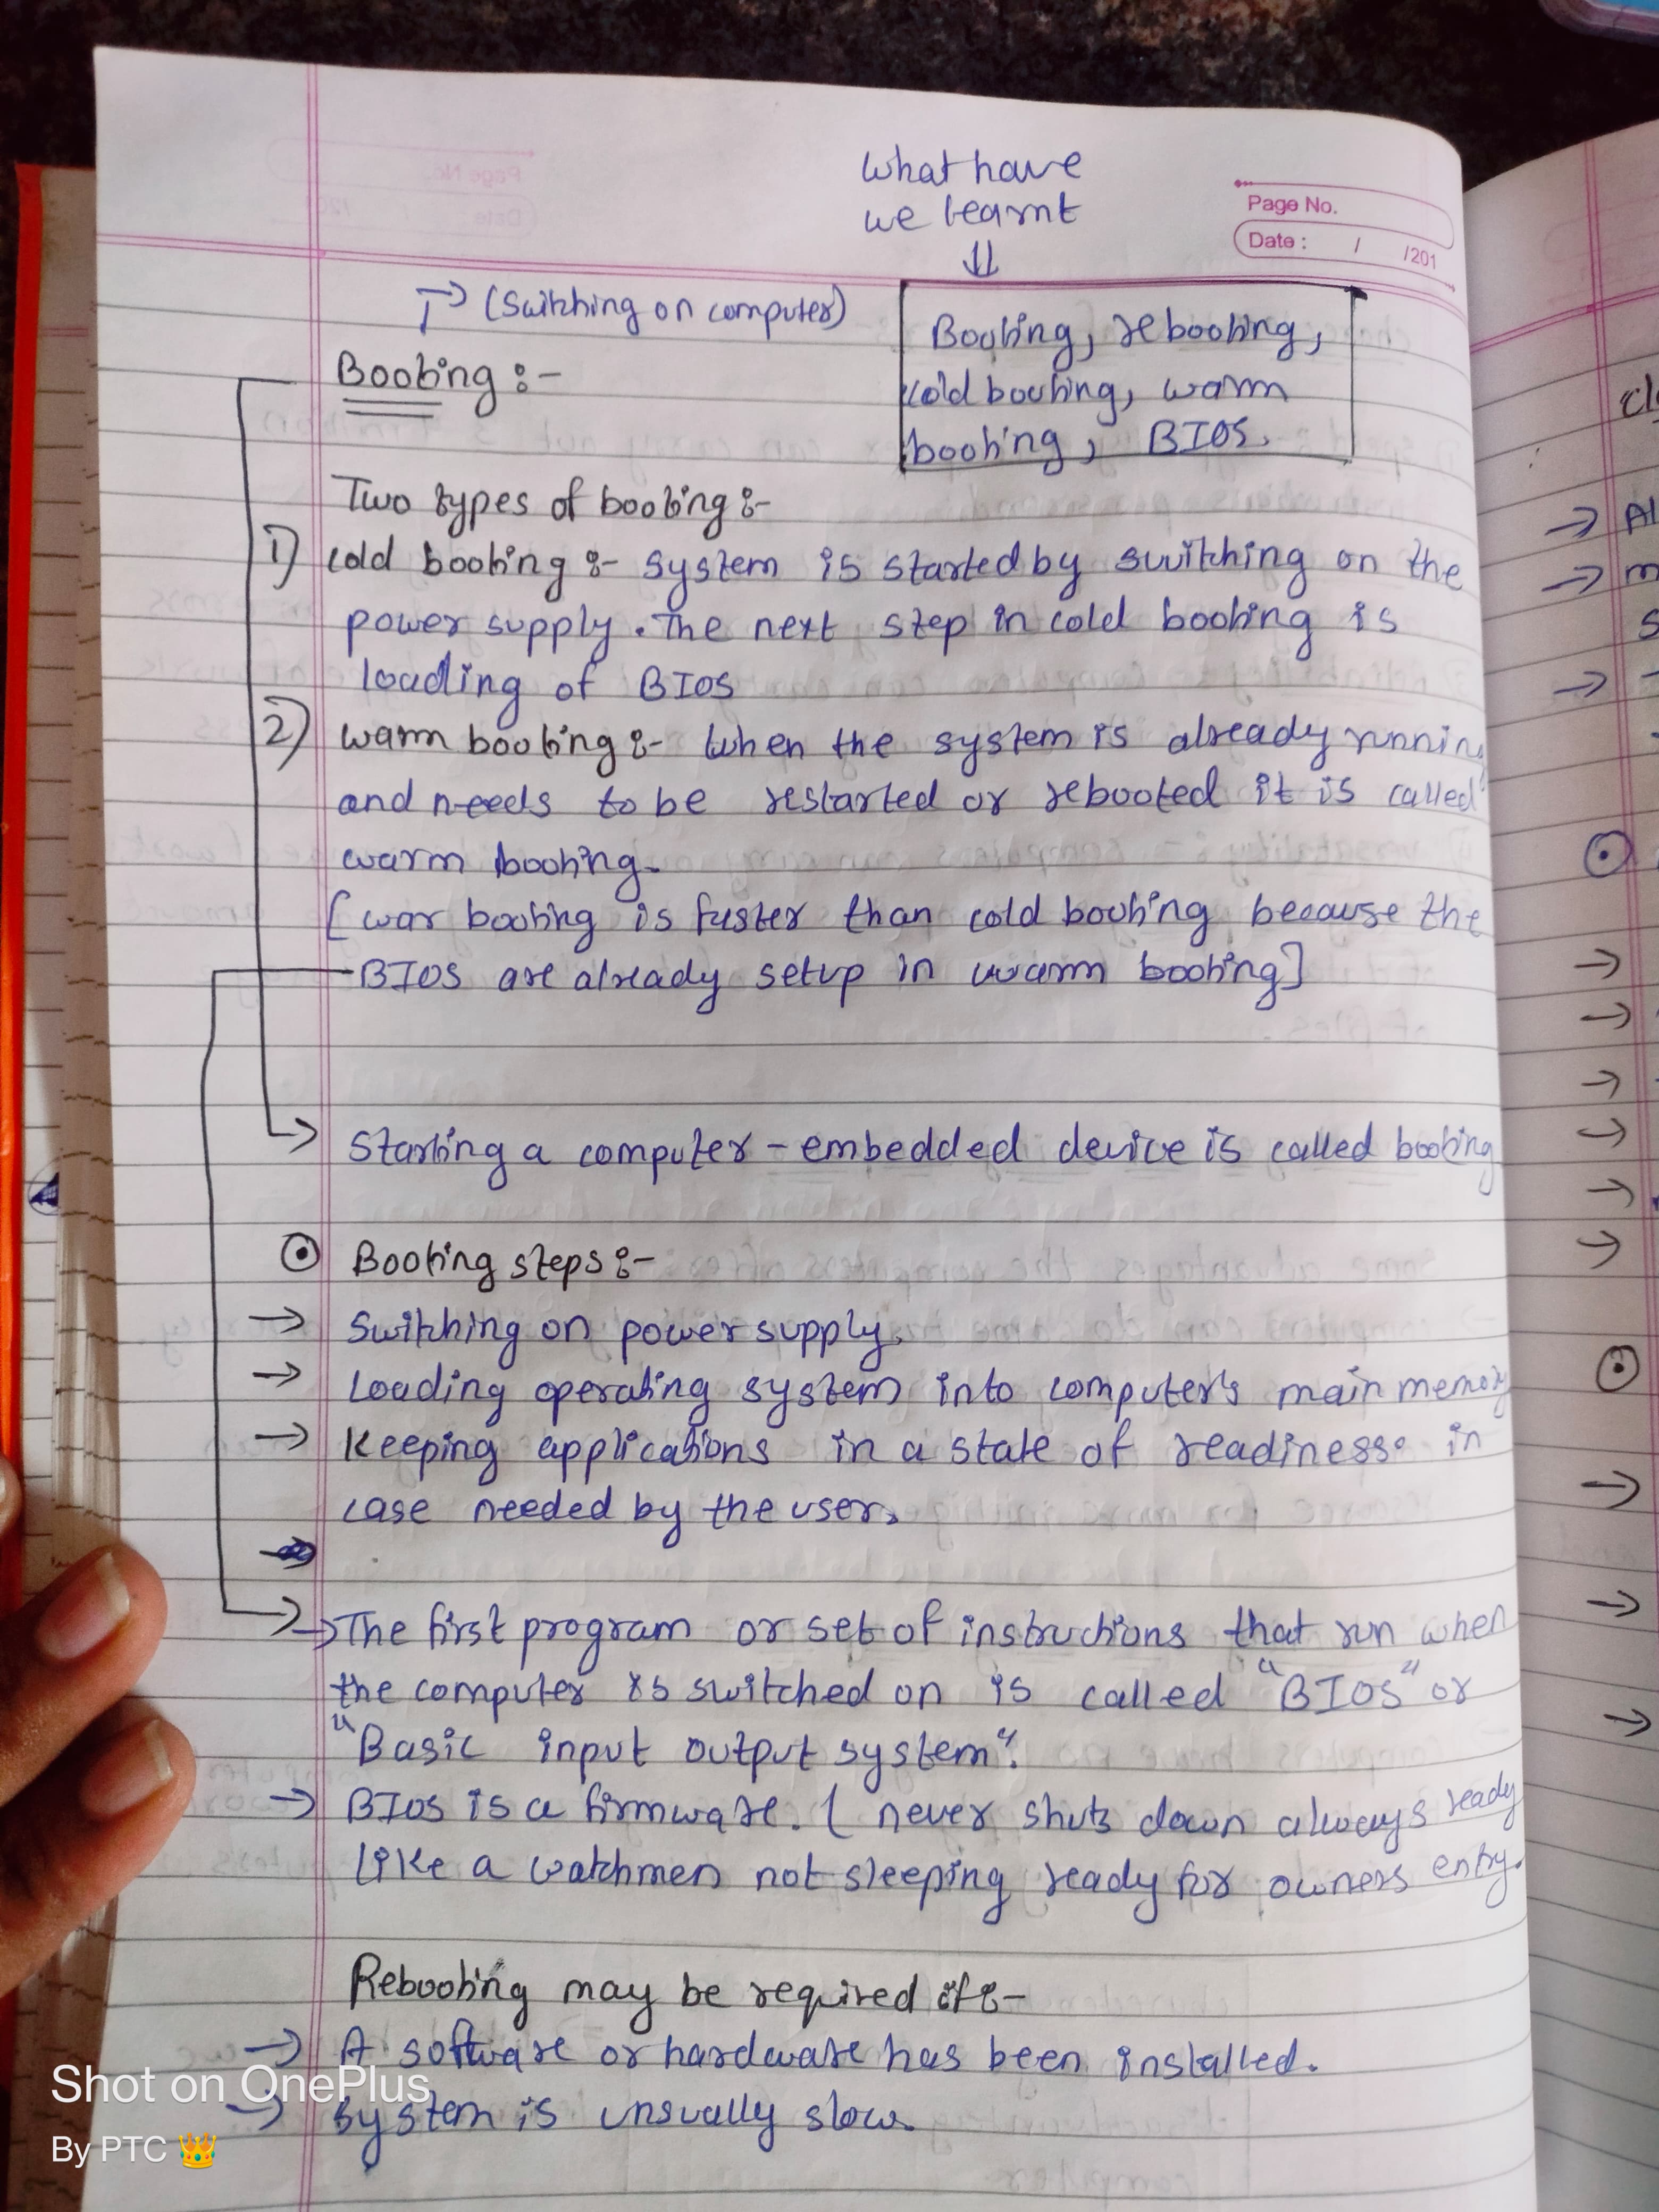 What have
we learnt
⇓
Page No.
Date : / /201
→ (Switching on computer)
Booting, rebooting,
cold booting, warm
booting, BIOS.
Booting :-
Two types of booting :-
1) cold booting :- system is started by switching on the
power supply. The next step in cold booting is
loading of BIOS
2) warm booting :- When the system is already runnin
and needs to be restarted or rebooted it is called
warm booting.
[war booting is faster than cold booting because the
BIOS are already setup in warm booting]
→ Starting a computer - embedded device is called booting
⊙ Booting steps :-
→ Switching on power supply.
→ Loading operating system into computer's main memory
→ Keeping applications in a state of readiness. in
case needed by the user.
→ The first program or set of instructions that run when
the computer is switched on is called "BIOS" or
"Basic input output system".
→ BIOS is a firmware. ( never shuts down always ready
Like a watchmen not sleeping ready for owners entry.
Rebooting may be required if :-
→ A software or hardware has been installed.
→ System is unsually slow.
Shot on OnePlus
By PTC 👑